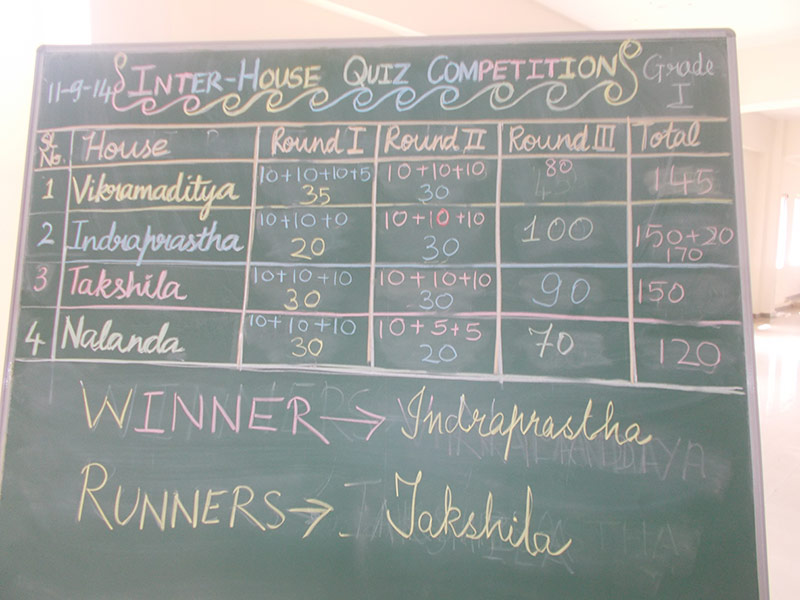 11-9-14 INTER-HOUSE QUIZ COMPETITION Grade I
Sl. No. House Round I Round II Round III Total
1 Vikramaditya 10+10+10+5 35 10+10+10 30 80 145
2 Indraprastha 10+10+0 20 10+10+10 30 100 150+20 170
3 Takshila 10+10+10 30 10+10+10 30 90 150
4 Nalanda 10+10+10 30 10+5+5 20 70 120
WINNER → Indraprastha
RUNNERS → Takshila